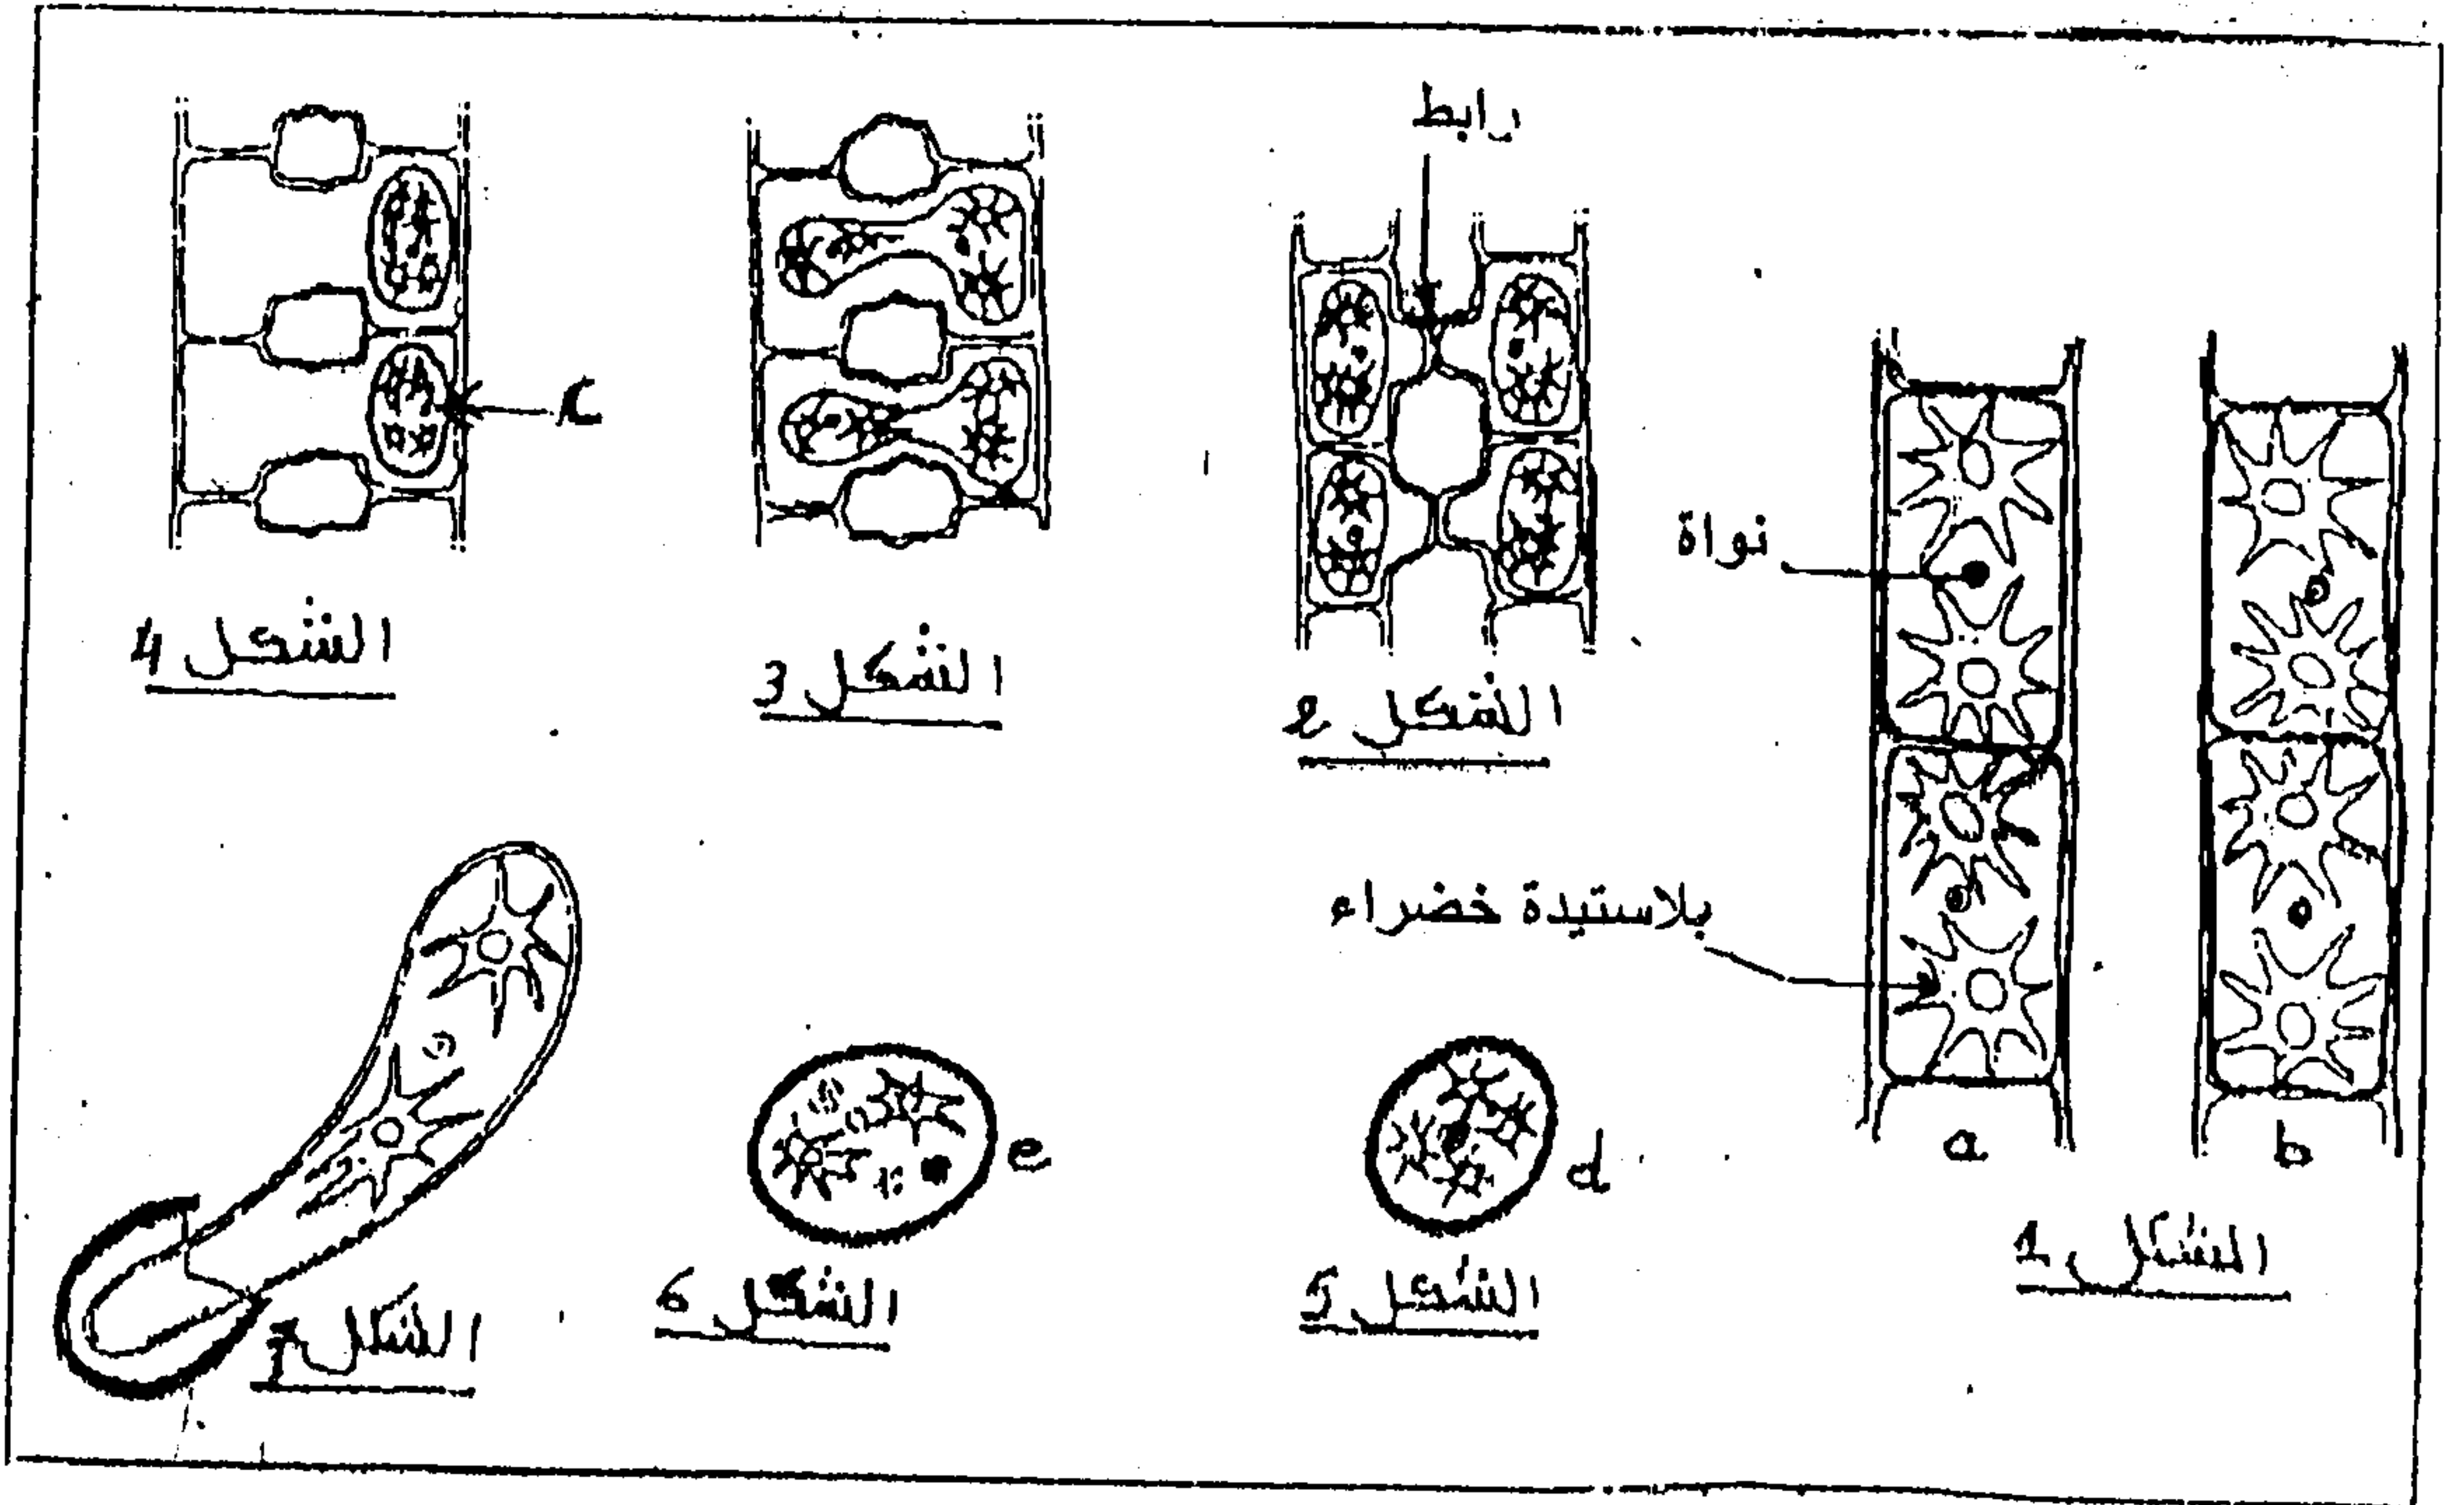 رابط
نواة
بلاستيدة خضراء
a
b
الشكل 1
الشكل 2
الشكل 3
c
الشكل 4
d
الشكل 5
e
الشكل 6
الشكل 7